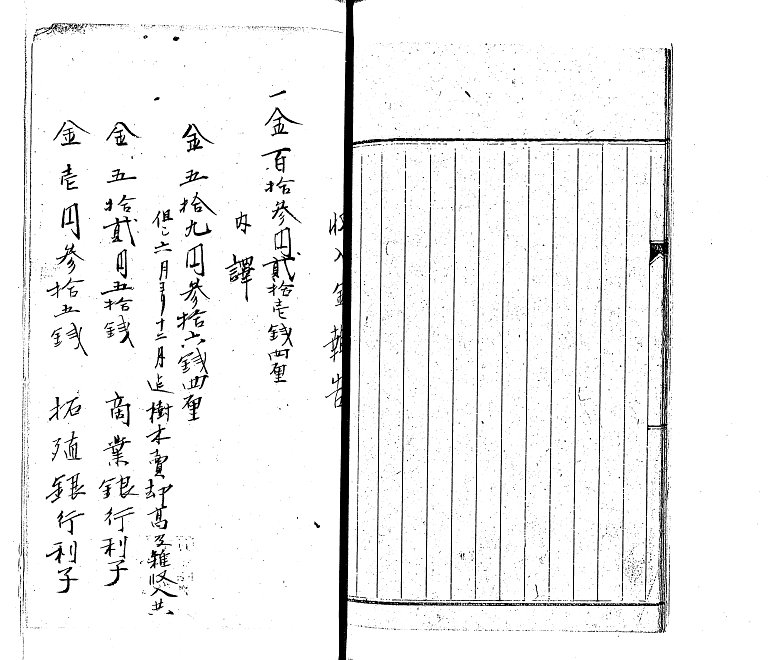 收入金報告
一金百拾參円貳拾壱錢四厘
內譯
金五拾九円參拾六錢四厘
但シ六月ヨリ十二月迠樹木賣却高及雜収入共
金五拾貳円五拾錢 商業銀行利子
金壱円參拾五錢 拓殖銀行利子